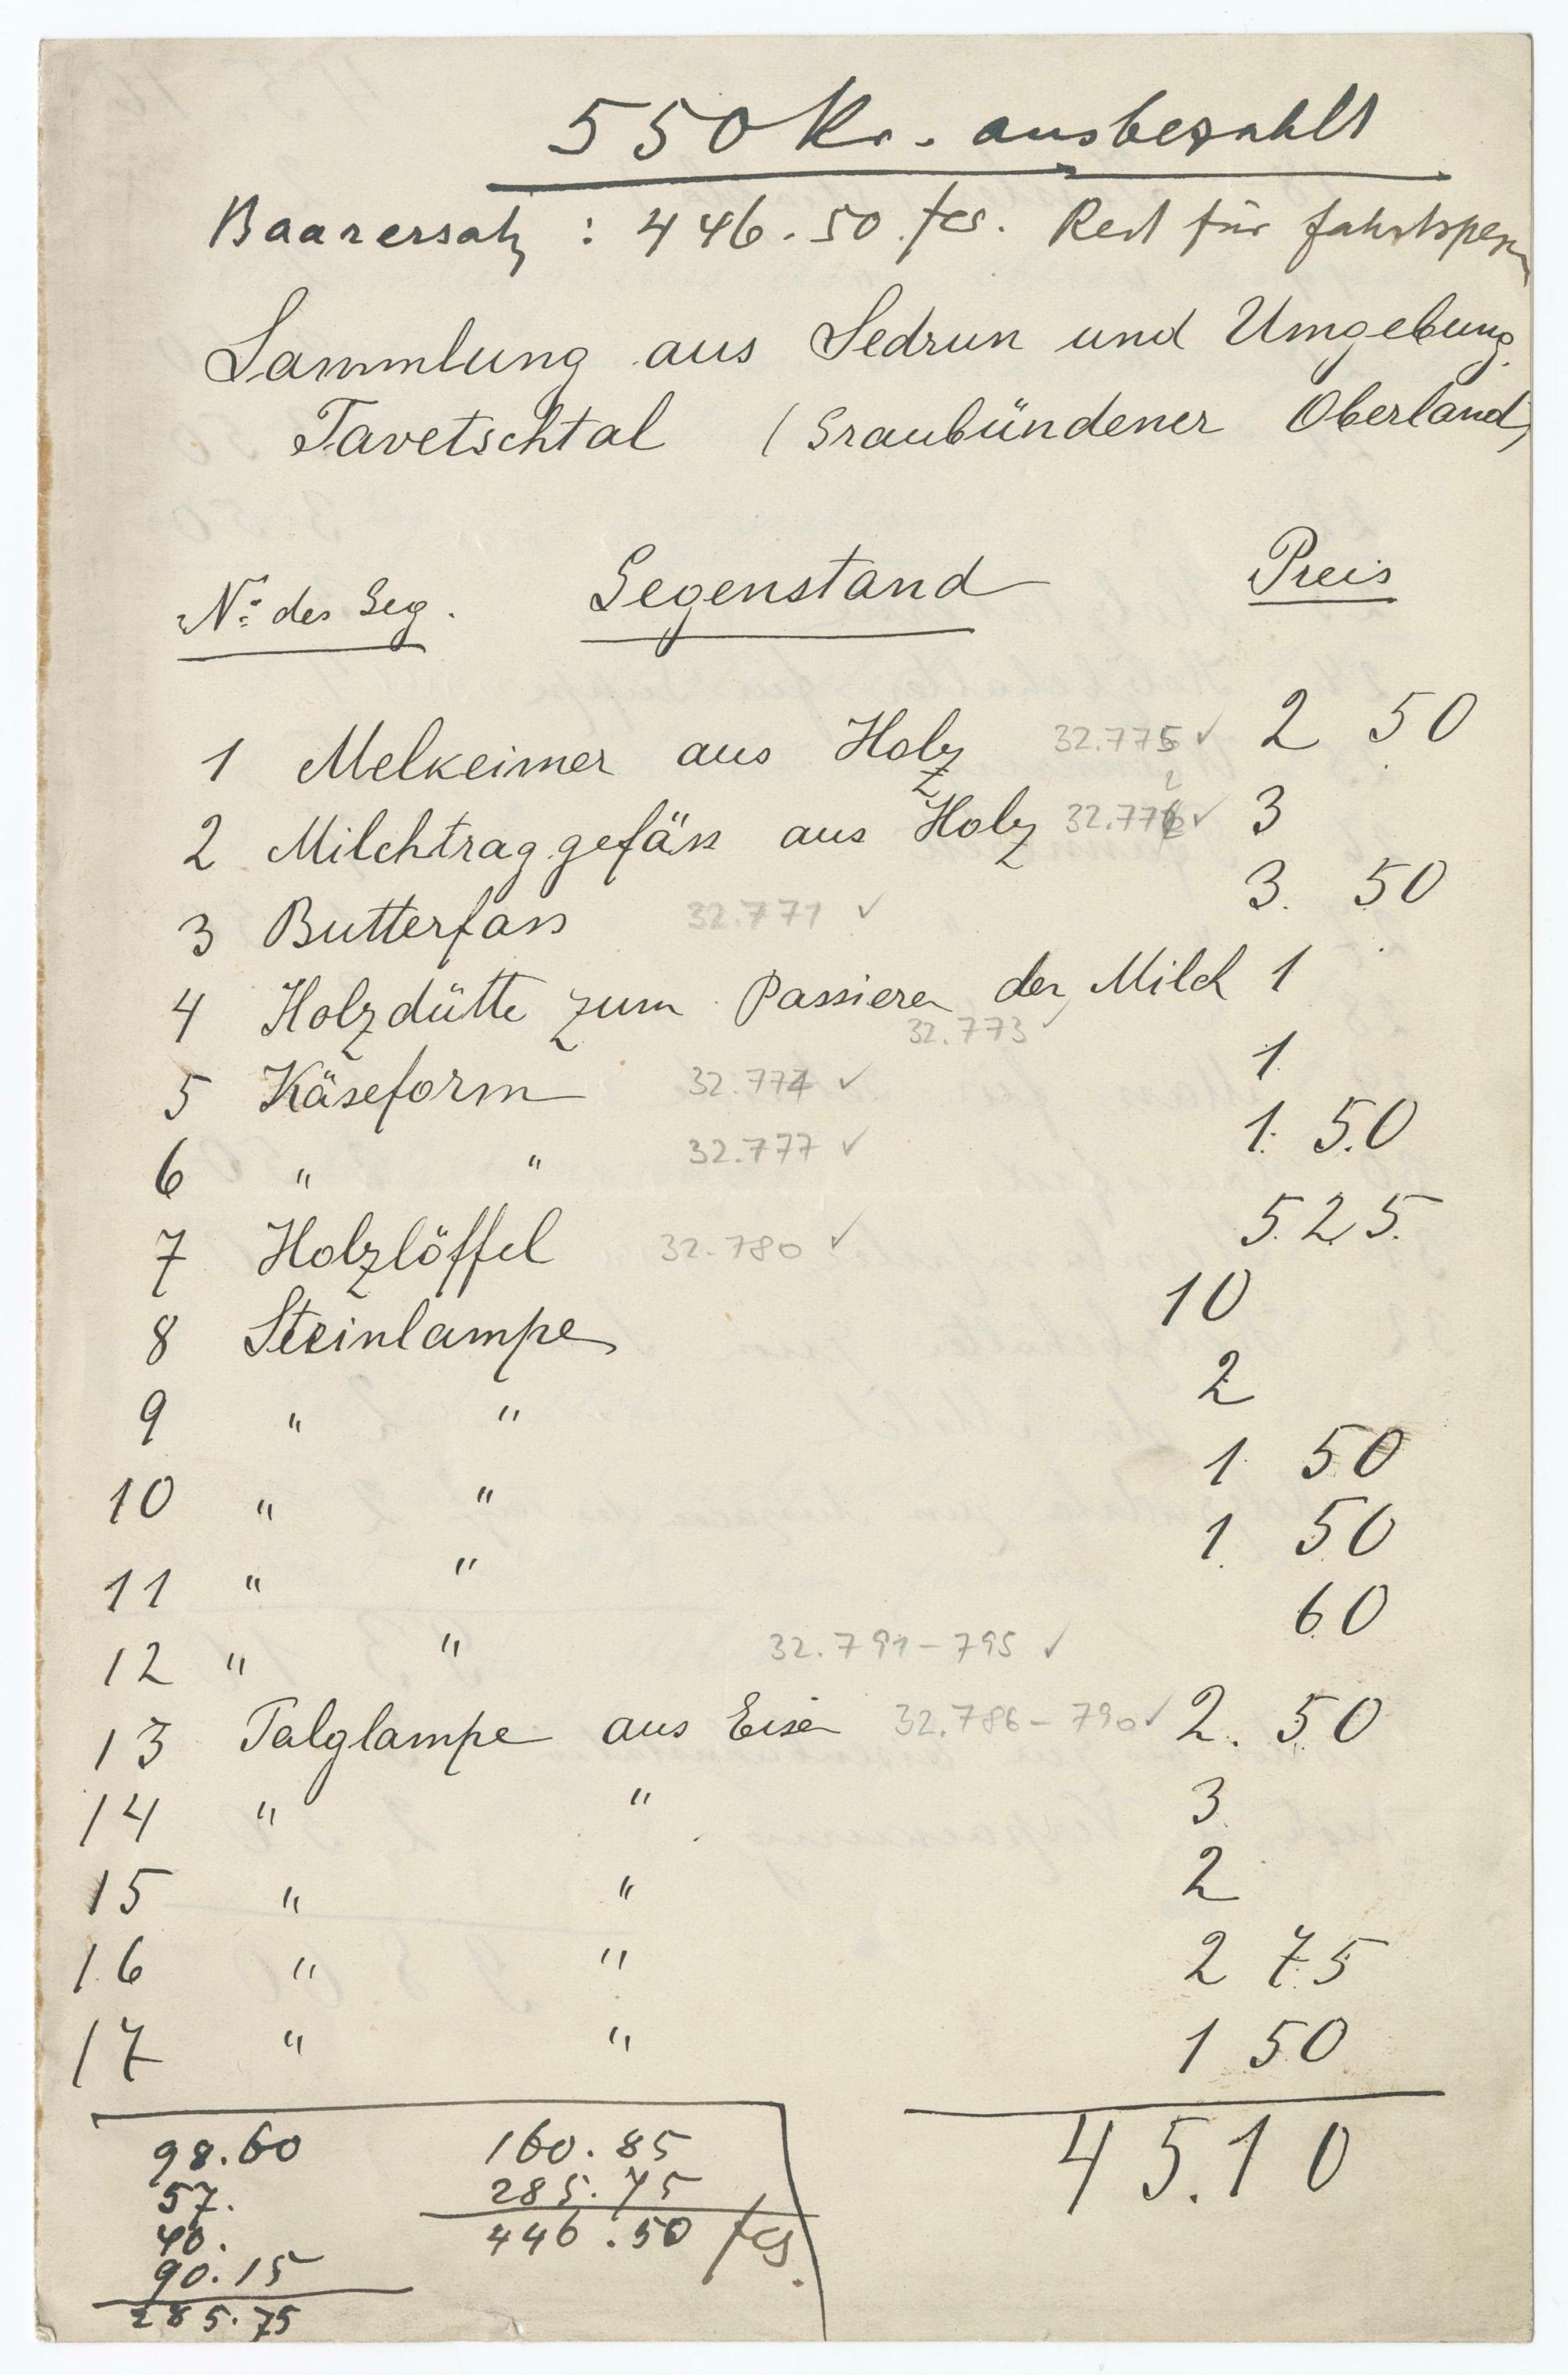 550 Kr. ausbezahlt
Baarersatz : 446.50 fcs. Rest für Fahrtspesen
Sammlung aus Sedrun und Umgebung.
Tavetschtal (Graubündener Oberland)
No. des Geg. Gegenstand Preis
1 Melkeimer aus Holz 32.775 ✓ 2 50
2 Milchtraggefäss aus Holz 32.772 ✓ 3
3 Butterfass 32.771 ✓ 3. 50
4 Holzdütte zum Passieren der Milch 1
32.773 ✓
5 Käseform 32.774 ✓ 1.
6 " " 32.777 ✓ 1. 50
7 Holzlöffel 32.780 ✓ 5.25.
8 Steinlampe 10
9 " " 2
10 " " 1 50
11 " " 1 50
12 " " 32.791-795 ✓ 60
13 Talglampe aus Eisen 32.786-790 ✓ 2. 50
14 " " 3
15 " " 2
16 " " 2 75
17 " " 1 50
45.10
98.60 160.85
57. 285.75
40. 446.50 fcs.
90.15
285.75